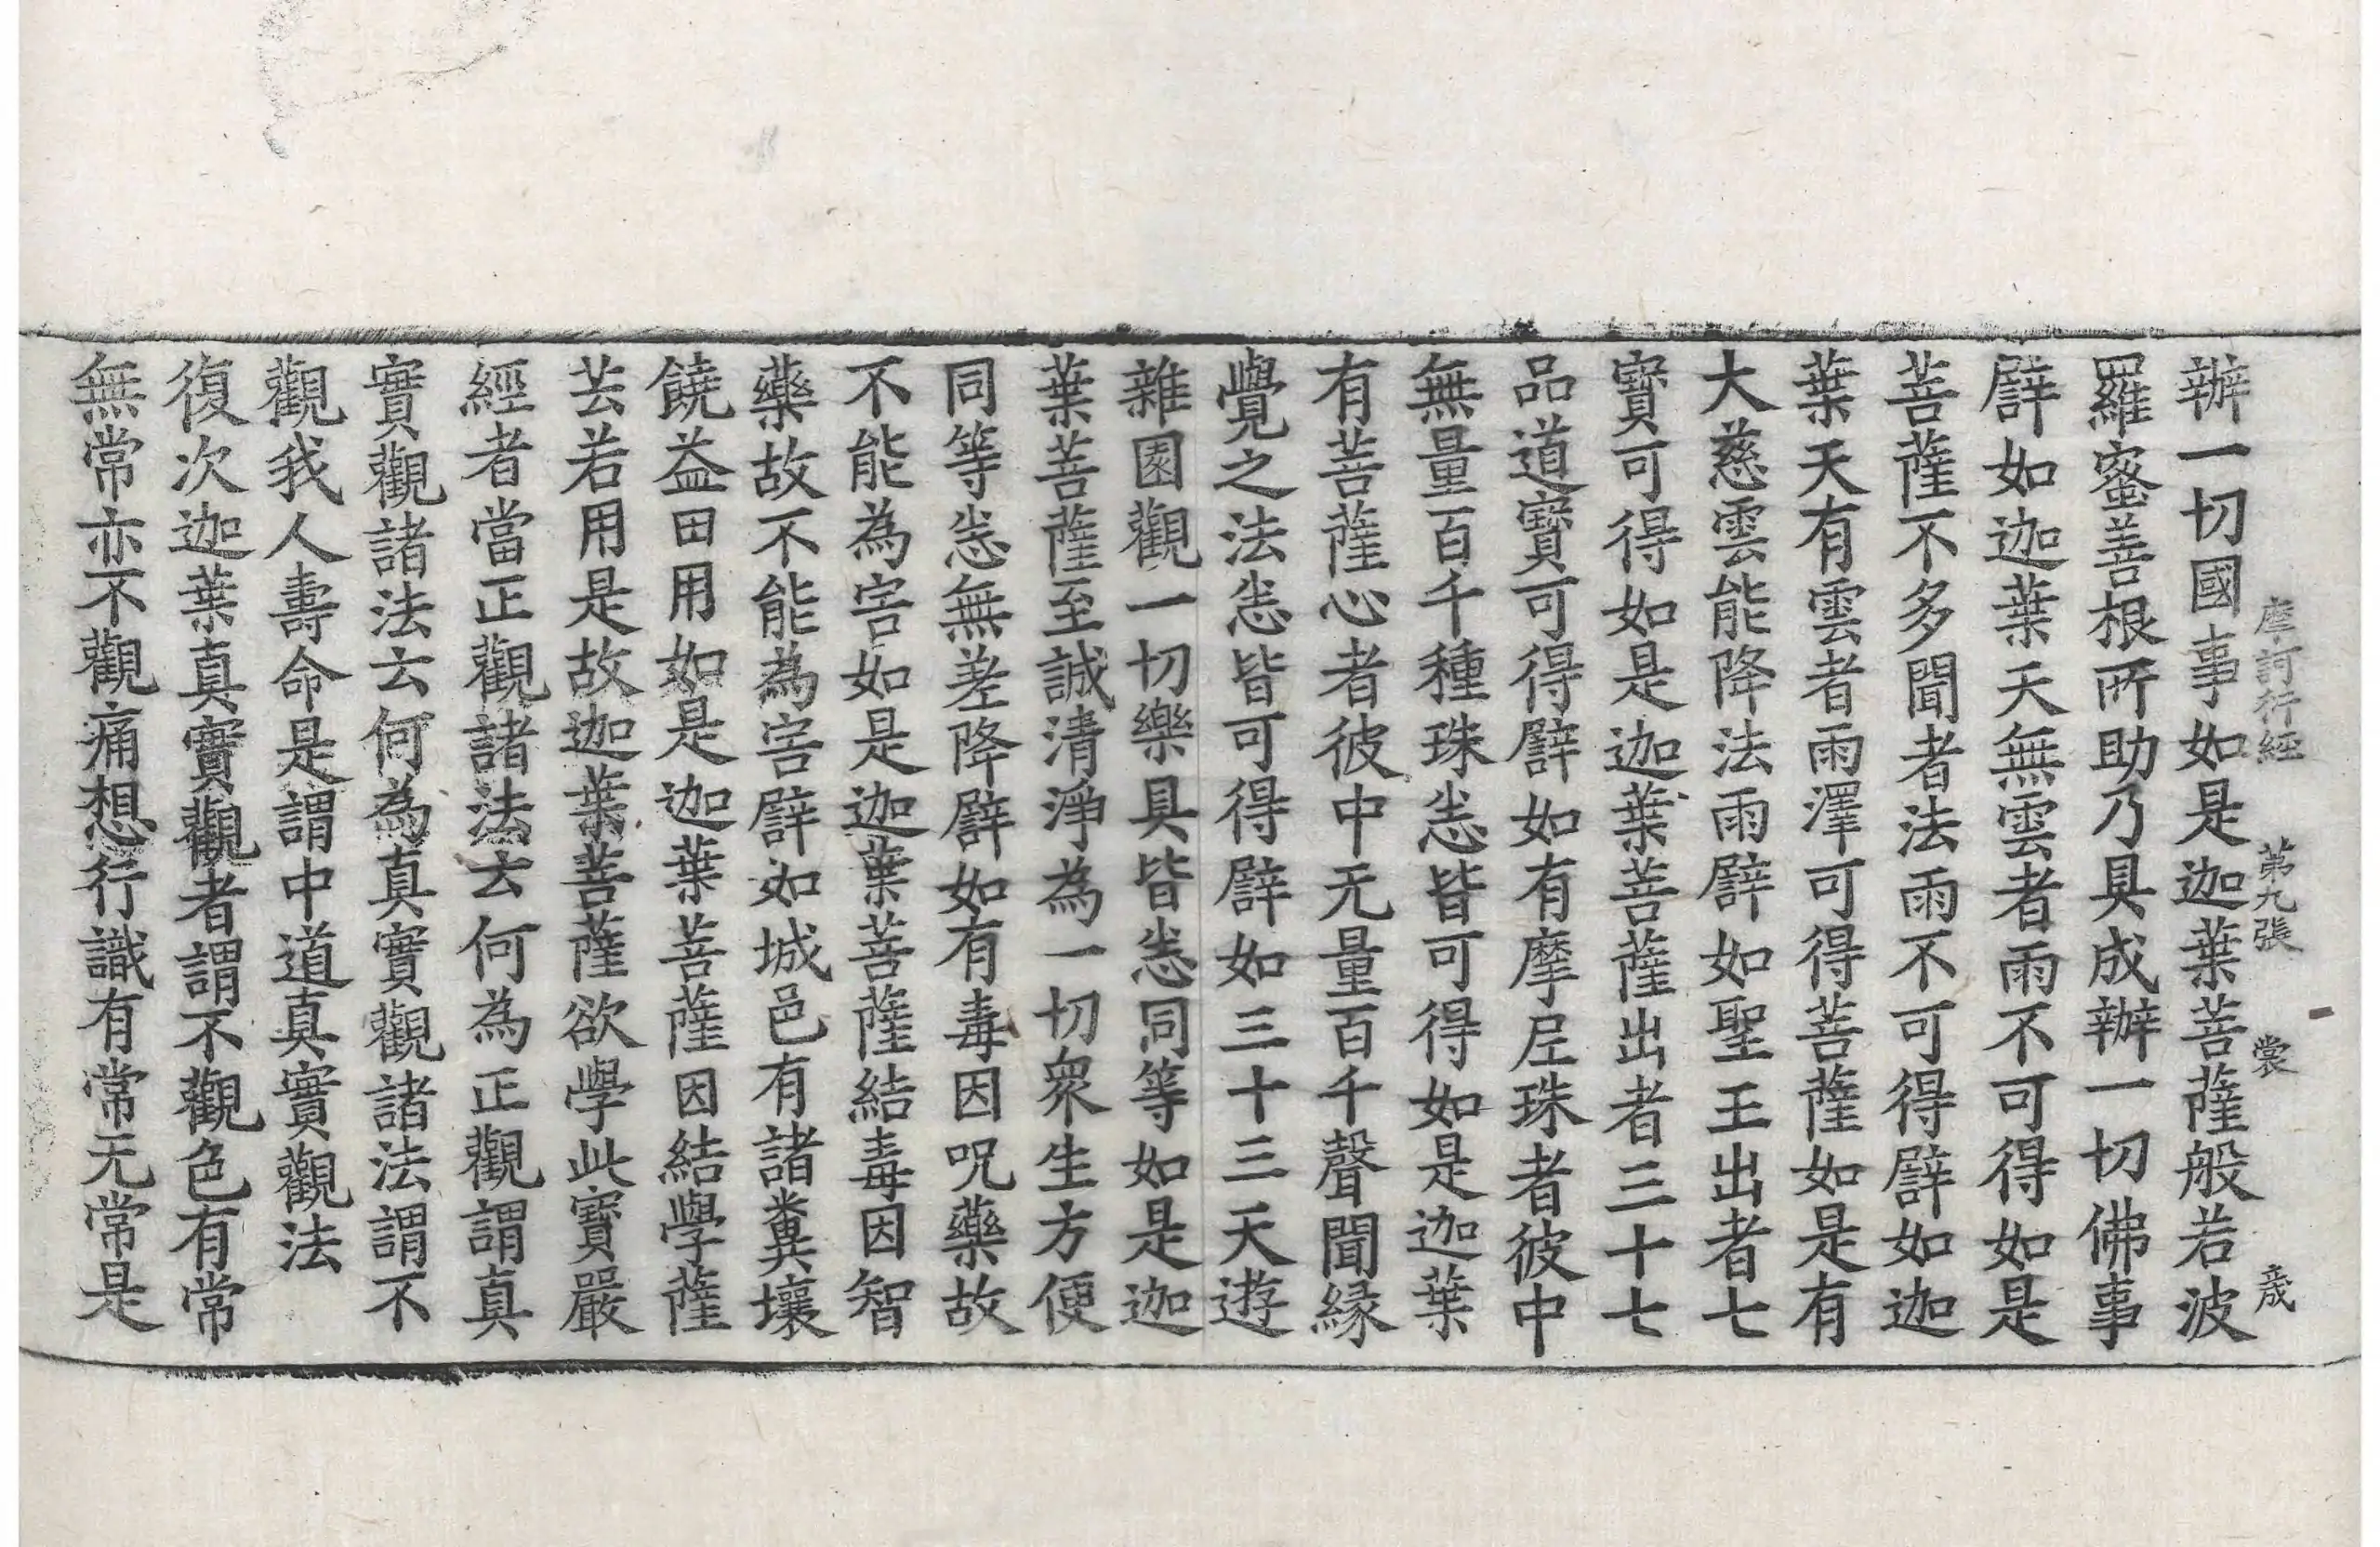 摩訶衍經　第九張　裳　𡻕
辦一切國事如是迦葉菩薩般若波
羅蜜善根所助乃具成辦一切佛事
譬如迦葉天無雲者雨不可得如是
菩薩不多聞者法雨不可得譬如迦
葉天有雲者雨澤可得菩薩如是有
大慈雲能降法雨譬如聖王出者七
寶可得如是迦葉菩薩出者三十七
品道寶可得譬如有摩𡰱珠者彼中
無量百千種珠悉皆可得如是迦葉
有菩薩心者彼中无量百千聲聞縁
覺之法悉皆可得譬如三十三天遊
雜園觀一切樂具皆悉同等如是迦
葉菩薩至誠清淨為一切衆生方便
同等悉無差降譬如有毒因呪藥故
不能為害如是迦葉菩薩結毒因智
藥故不能為害譬如城邑有諸糞壤
饒益田用如是迦葉菩薩因結學薩
芸若用是故迦葉菩薩欲學此寶嚴
經者當正觀諸法云何為正觀謂真
實觀諸法云何為真實觀諸法謂不
觀我人壽命是謂中道真實觀法
復次迦葉真實觀者謂不觀色有常
無常亦不觀痛想行識有常无常是